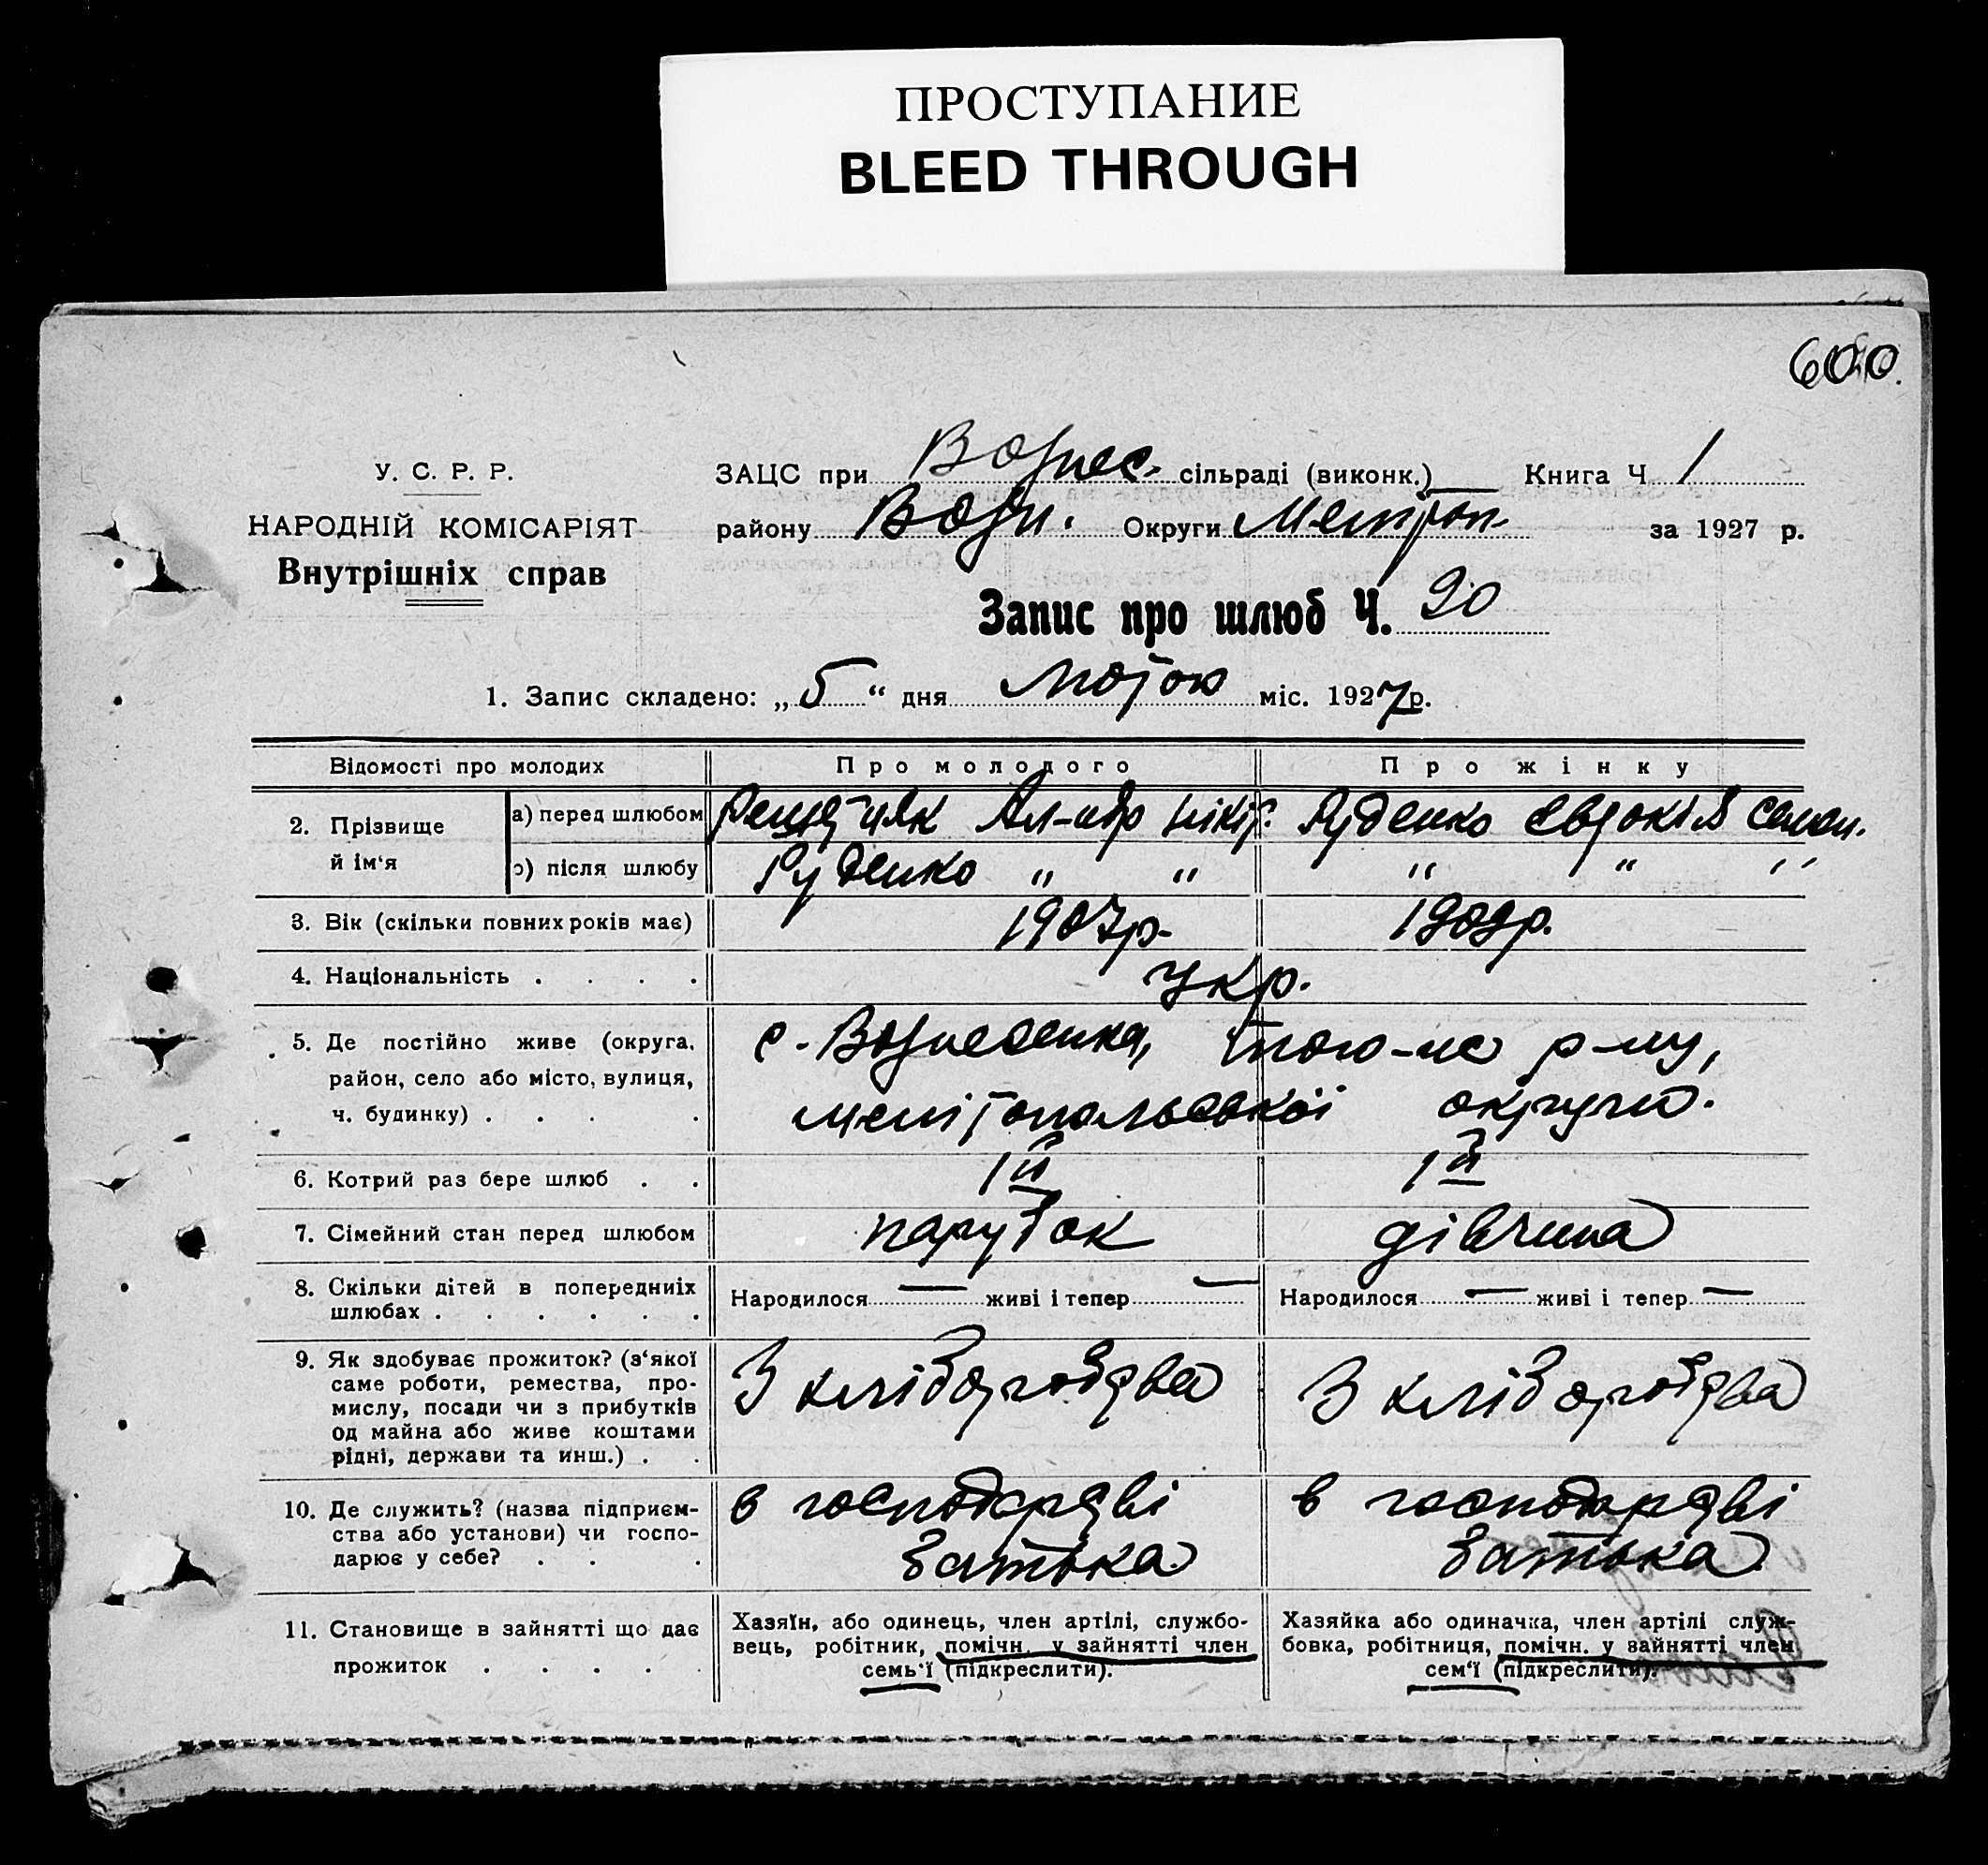 ПРОСТУПАНИЕ
BLEED THROUGH
600.
У. С. Р. Р.
НАРОДНІЙ КОМІСАРІЯТ
Внутрішніх справ
ЗАЦС при Вознес. сільраді (виконк.) Книга Ч. 1
району Возн. Округи Мелітоп. за 1927 р.
Запис про шлюб Ч. 20
1. Запис складено: „5“ дня лютого міс. 1927 р.
Відомості про молодих Про молодого Про жінку
2. Прізвище й ім‘я
а) перед шлюбом Ал-ндр Нікіф. Руденко Євдокія Семен.
о) після шлюбу Руденко " " " " "
3. Вік (скільки повних років має) 1907р. 1909р.
4. Національність . . . . Укр.
5. Де постійно живе (округа, с. Вознесенка, того-же р-ну,
район, село або місто, вулиця, Мелітопольської округи.
ч. будинку) . . . .
6. Котрий раз бере шлюб . . 1й 1й
7. Сімейний стан перед шлюбом парубок дівчина
8. Скільки дітей в попередниіх Народилося — живі і тепер — Народилося — живі і тепер —
шлюбах . . . . . .
9. Як здобуває прожиток? (з‘якої З хліборобства З хліборобства
саме роботи, ремества, про-
мислу, посади чи з прибутків
од майна або живе коштами
рідні, держави та инш.) . .
10. Де служить? (назва підприєм- в господарстві в господарстві
ства або установи) чи госпо- батька батька
дарює у себе? . . .
11. Становище в зайнятті що дає Хазяїн, або одинець, член артілі, службо- Хазяйка або одиначка, член артілі служ-
прожиток . . . . . вець, робітник, помічн. у зайнятті член бовка, робітниця, помічн. у зайнятті член
семь‘ї (підкреслити). сем‘ї (підкреслити).